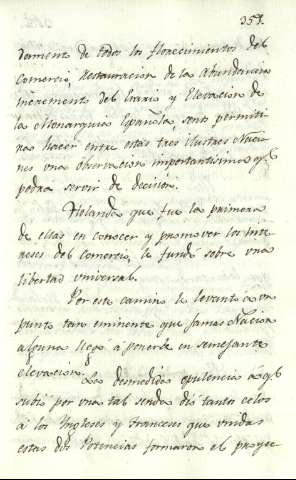 353.
damento de todos los florecimientos del
Comercio, restauracion de la Abundancia
incremento del Erario y Elevacion de
la Monarquia Española, seame permiti
hacer entre estas tres ilustres Nacio
nes una observacion importantisima q.e
podra servir de decision.
Holanda que fue la primera
de ellas en conocer y promover los Inte
reses del comercio, le fundó sobre una
libertad universal.
Por este camino le levanto a un
punto tan eminente que jamas Nacion
alguna llegó a ponerse en semejante
elevacion.
La desmedida opulencia a q.e
subió por una tal senda dio tantos celos
á los Ingleses y Franceses que unidas
estas dos Potencias formaron el proyec